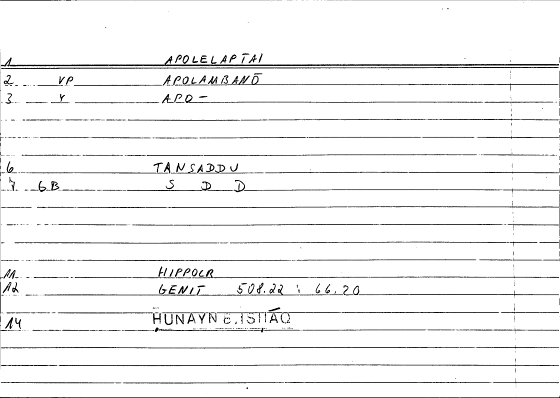 1 APOLELAPTAI
2 VP APOLAMBANŌ
3 Y APO-
6 TANSADDU
7 GB S D D
11 HIPPOCR
12 GENIT 508.22 : 66.20
14 ḤUNAYN B. ISḤĀQ